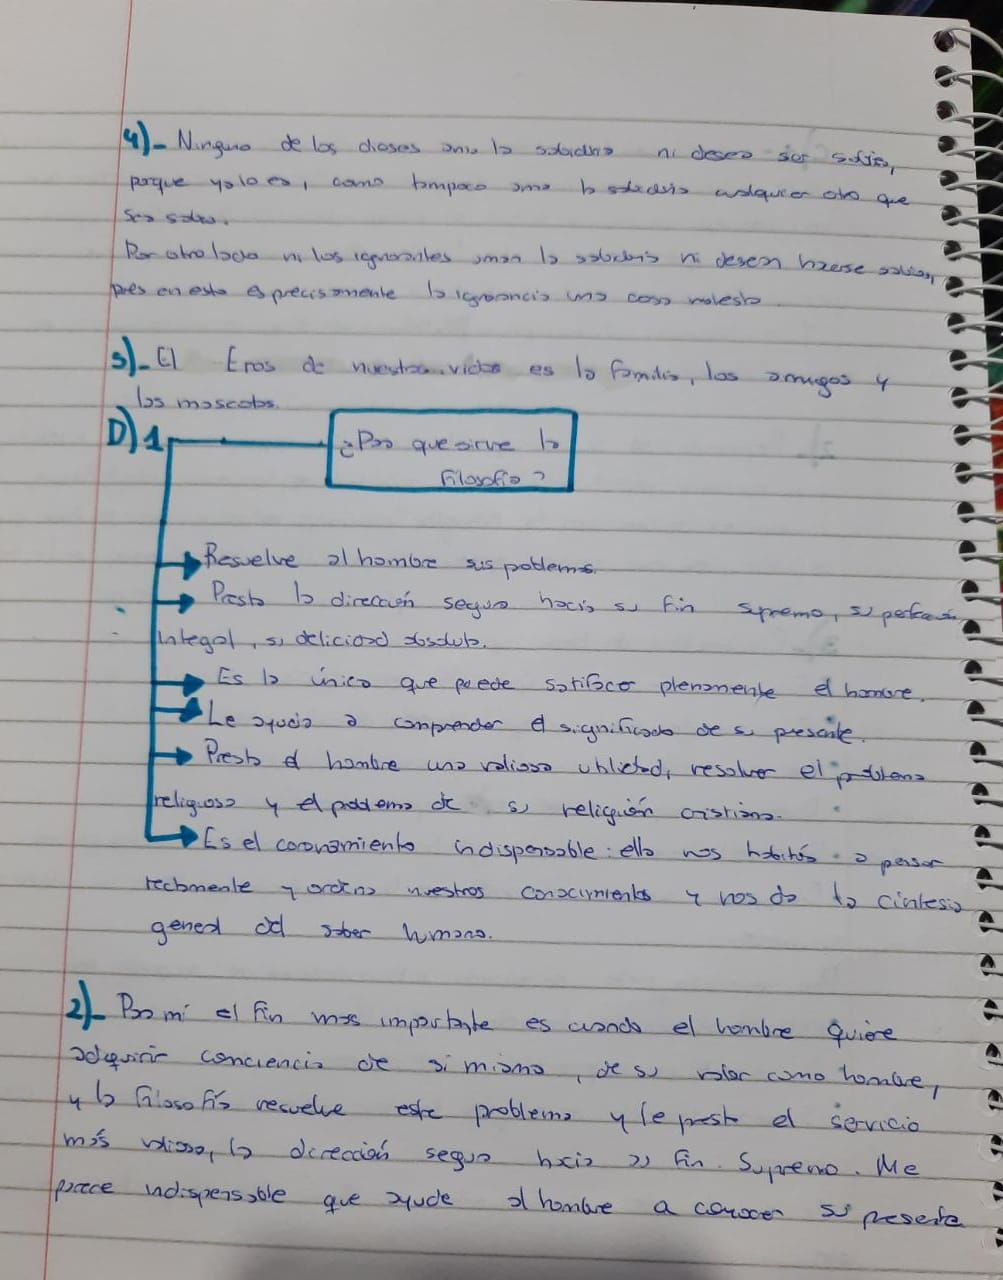 4)- Ninguno de los dioses ama la sabiduria ni desea ser sabio,
porque ya lo es, como tampoco ama la sabiduria cualquier otro que
sea sabio.
Por otro lado ni los ignorantes aman la sabiduria ni desean hacerse sabios,
pues en esto es precisamente la ignorancia una cosa molesta
5)- El Eros de nuestra vida es la familia, los amigos y
las mascotas.
D) 1
¿Para que sirve la
Filosofia?
Resuelve al hombre sus poblemas.
Presta la dirección segura hacia su fin supremo, su perfección
integal, su delicidad absoluta.
Es la único que puede satifacer plenamente el hombre.
Le ayuda a comprender el significado de su presente.
Presta al hombre una valiosa utilidad, resolver el problema
religioso y el poblema de su religión cristiana.
Es el coronamiento indispensable: ella nos habitúa a pensar
rectamente y ordena nuestros conocimientos y nos da la cintesis
general del saber humano.
2)- Para mí el fin mas importante es cuando el hombre quiere
adquirir conciencia de si mismo, de su valor como hombre,
y la filosofía resuelve este problema y le presta el servicio
más valioso, la dirección segura hacia su fin. Supremo. Me
parece indispensable que ayude al hombre a conocer su presente